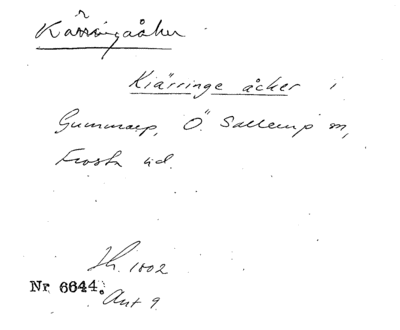 Kärringaåker
Kiärringe åcker i
Gummarp, Ö. Sallerup sn,
Frosta hd.
Jb. 1802
Nr 6644.
Avt 9